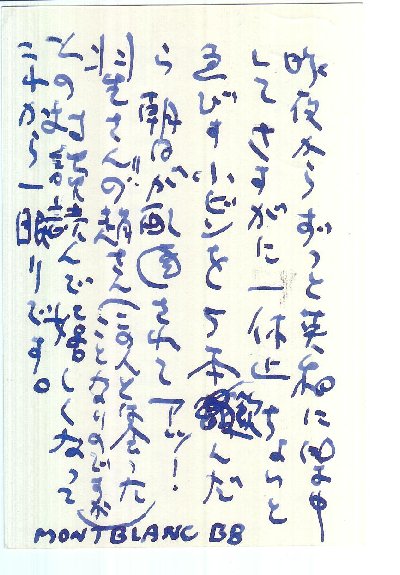 昨夜からずっと英和に
してさすがに一休止ちょいと
ゑびす小ビンを5本飲んだ
ら朝日が配達されてアッ!
さんの趙さん(この人と会った
ことなりのですが)
との対談読んで嬉しくなって
これから一眠りです。
MONTBLANC BB